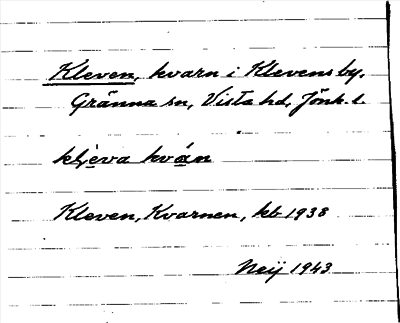 Kleven, kvarn i Klevens by,
Gränna sn, Vista hd, Jönk. l.
kleva kvan
Kleven, Kvarnen, kb 1938
Neij 1943